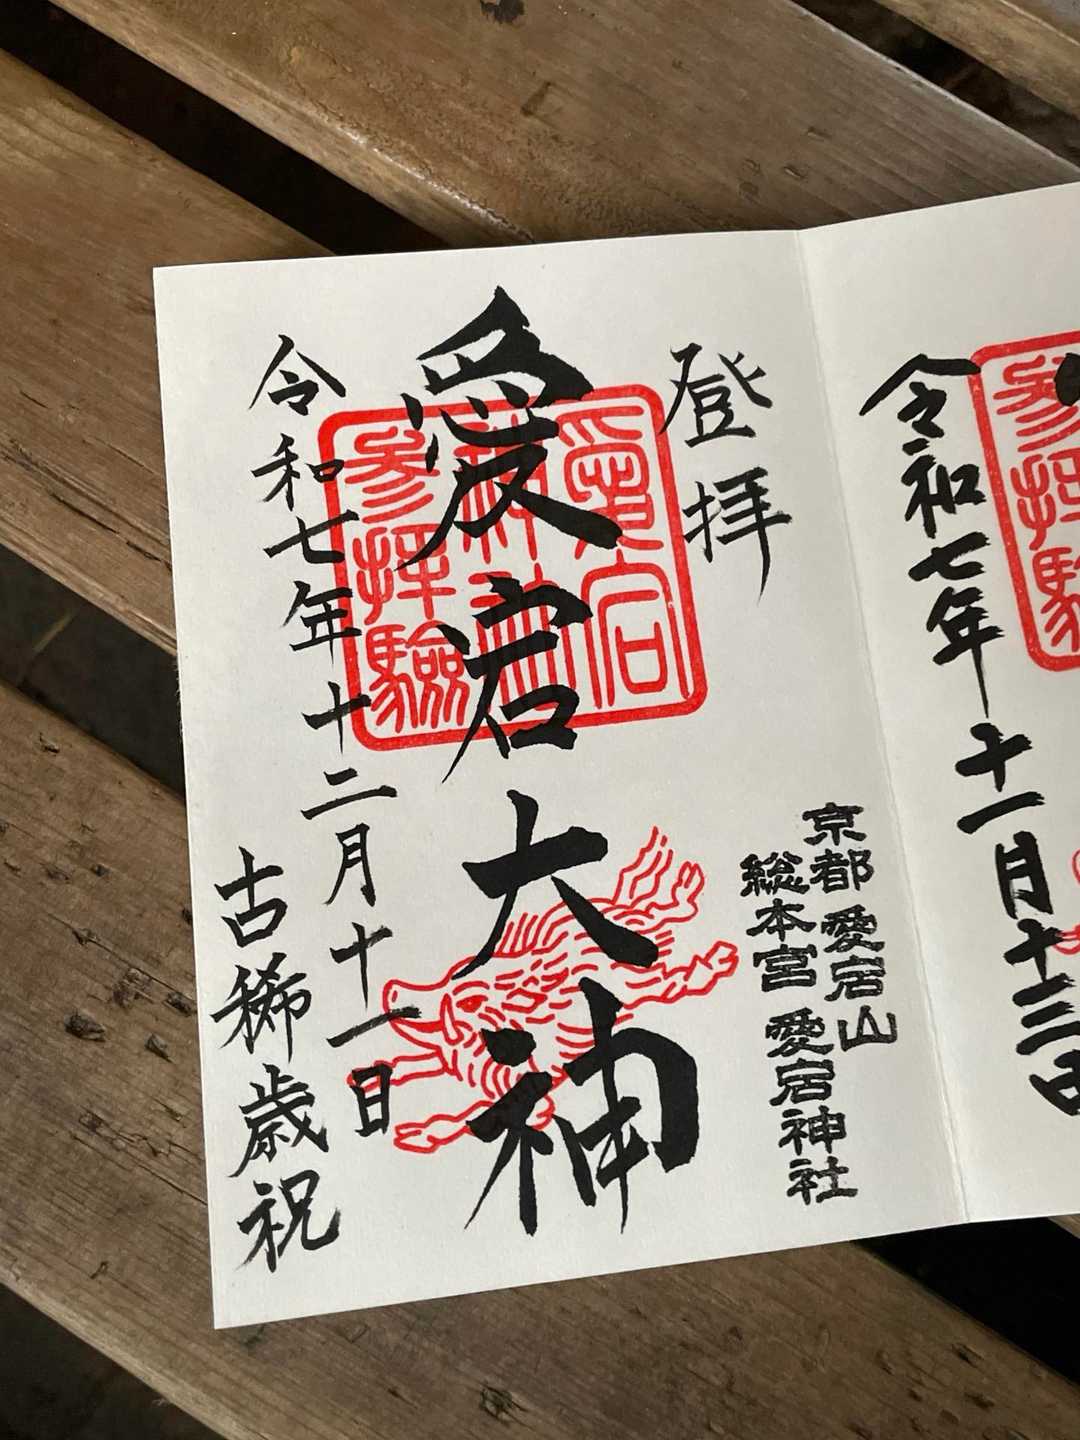 令和七年十一月十三日
参拝験
登拝
愛宕大神
愛宕
神社
参拝験
京都 愛宕山
総本宮 愛宕神社
令和七年十二月十一日
古稀歳祝